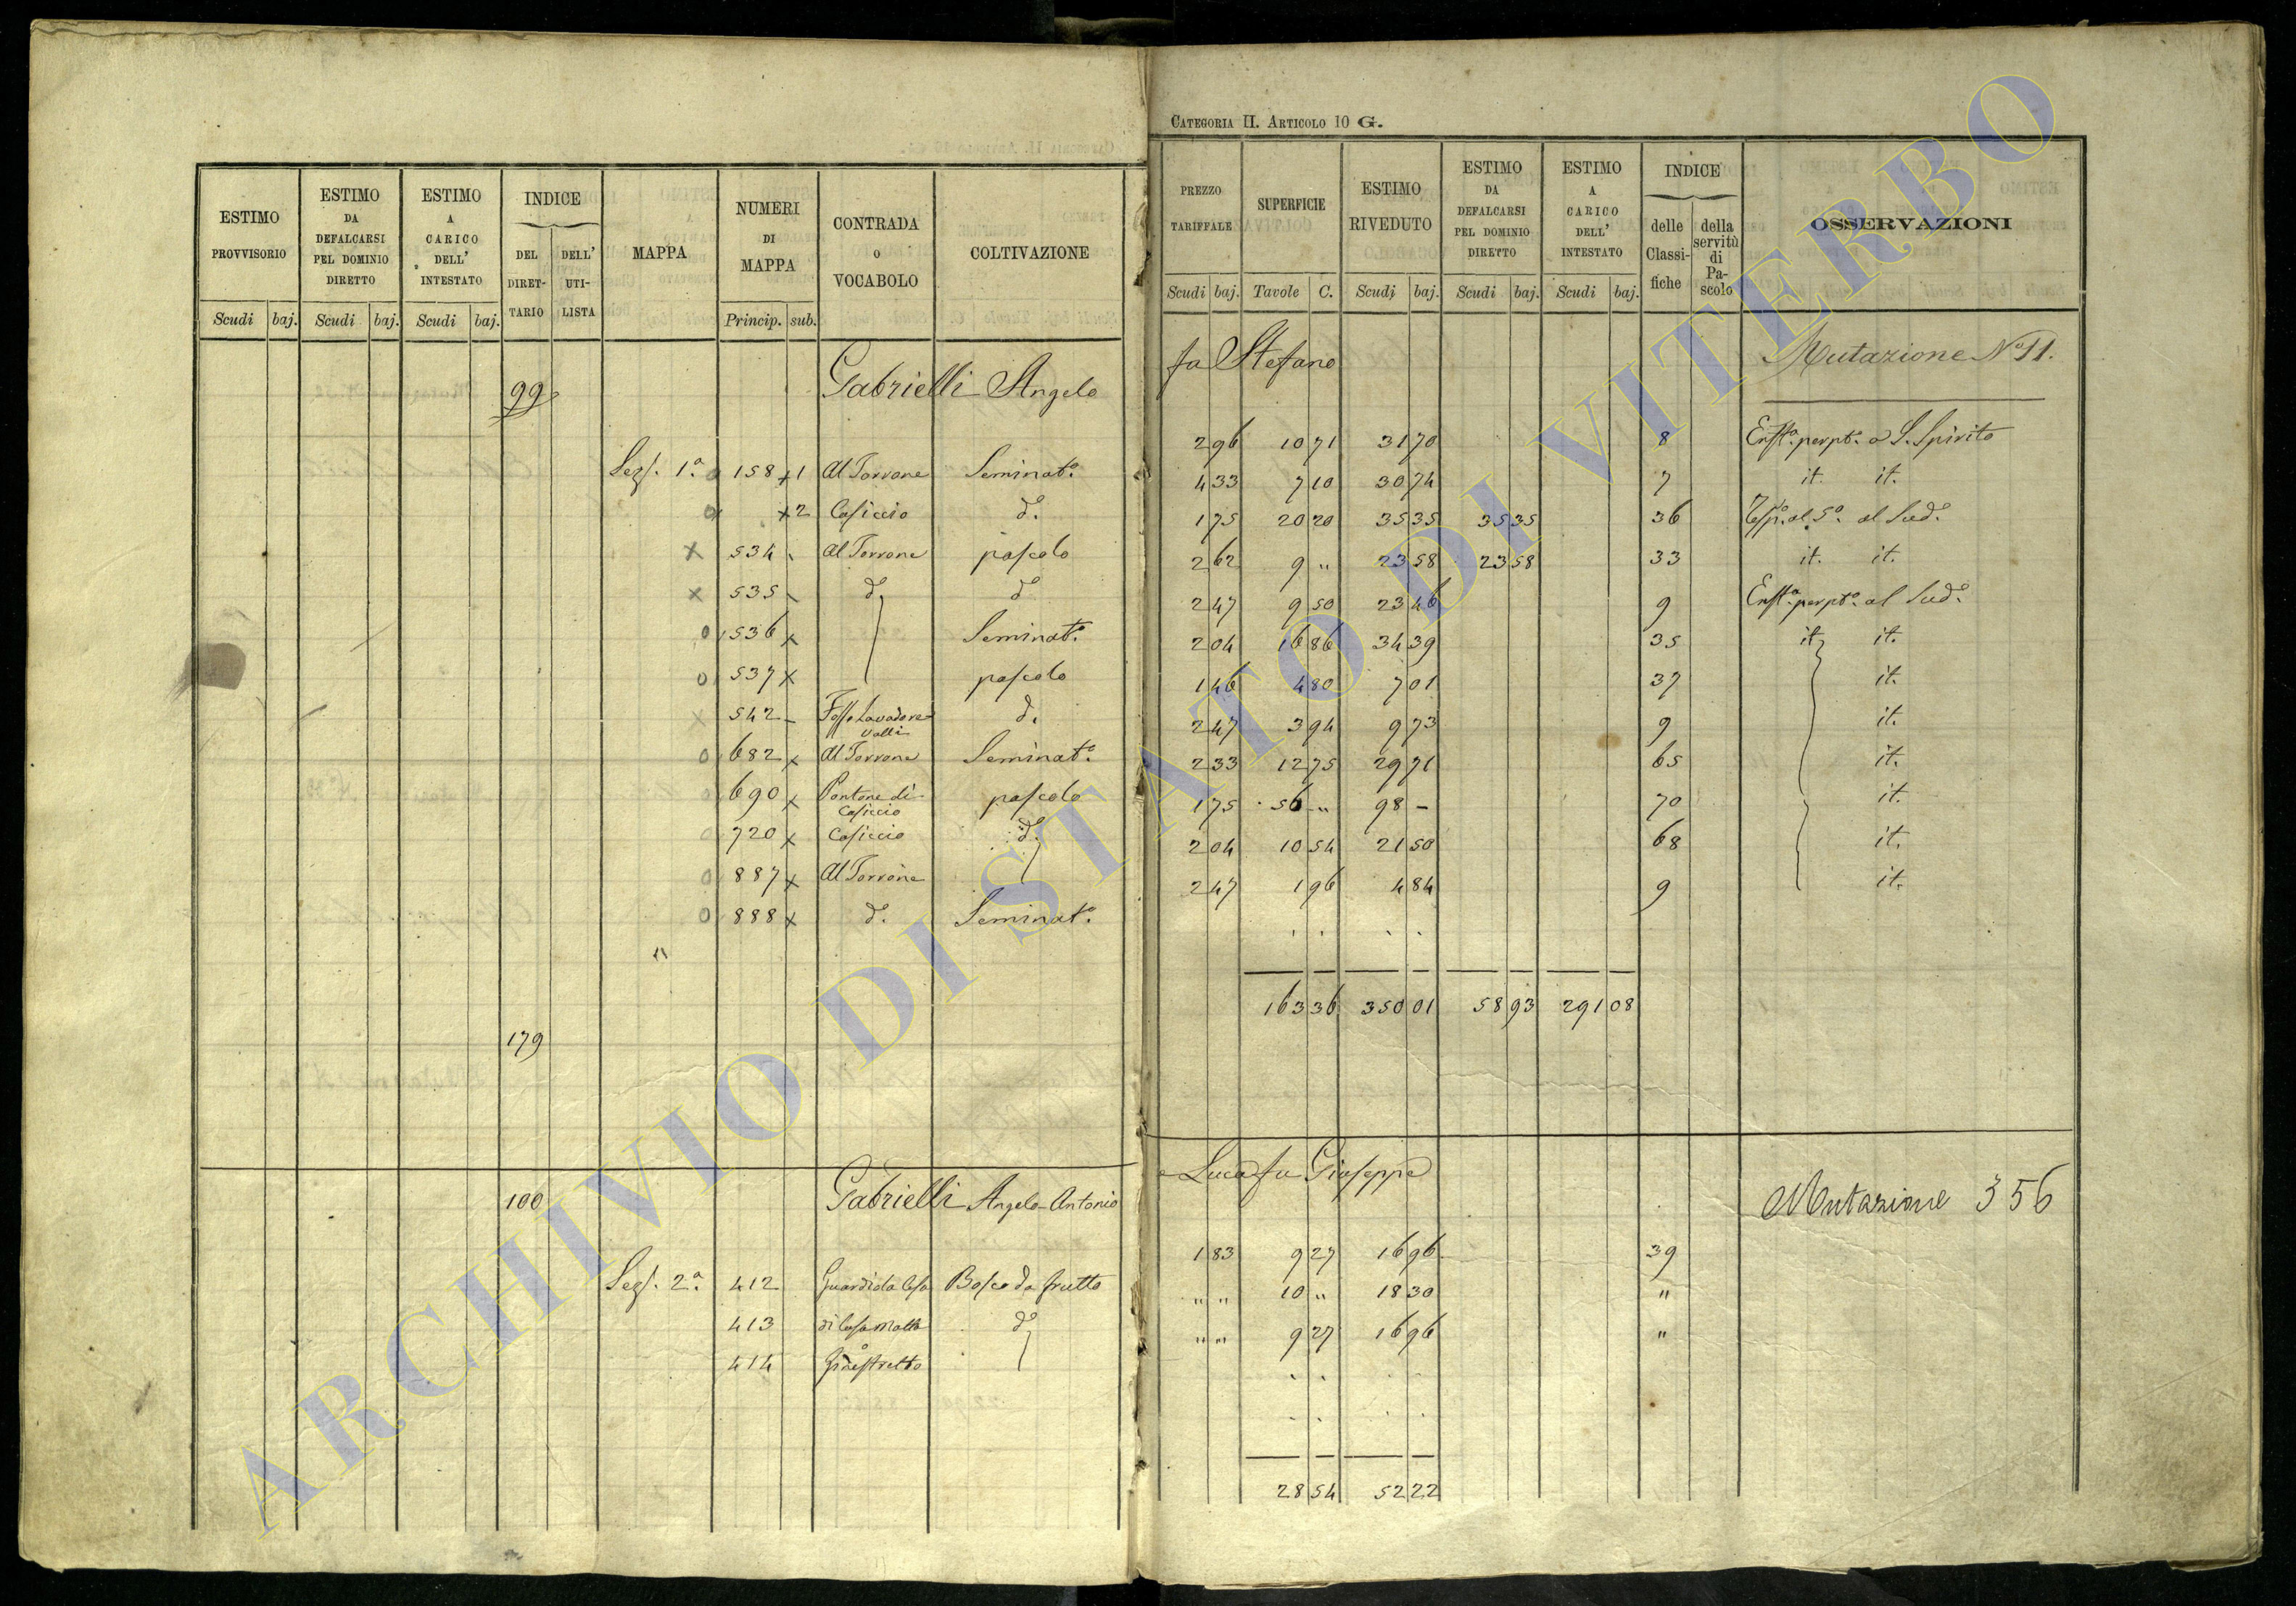 ESTIMO PROVVISORIO | ESTIMO DA DEFALCARSI PEL DOMINIO DIRETTO | ESTIMO A CARICO DELL' INTESTATO | INDICE | MAPPA | NUMERI DI MAPPA | CONTRADA O VOCABOLO | COLTIVAZIONE
DEL DIRETTARIO | DELL' UTILISTA
Scudi | baj. | Scudi | baj. | Scudi | baj. | Princip. | sub.
99 Gabrielli Angelo
Sez. 1.ª 158 1 Al Torrone Seminat.º
2 Casiccio d.º
534 Al Torrone pascolo
535 d.º d.º
536 Seminat.º
537 pascolo
542 Fosso Lavadore Valli d.º
682 Al Torrone Seminat.º
690 Pontone di Casiccio pascolo
720 Casiccio d.º
887 Al Torrone
888 d.º Seminat.º
"
179
100 Gabrielli Angelo-Antonio
Sez. 2.ª 412 Guardiola Casa Bosco da frutto
413 di Casa Matta d.º
414 Ginestretto
CATEGORIA II. ARTICOLO 10 G.
PREZZO TARIFFALE | SUPERFICIE | ESTIMO RIVEDUTO | ESTIMO DA DEFALCARSI PEL DOMINIO DIRETTO | ESTIMO A CARICO DELL' INTESTATO | INDICE | OSSERVAZIONI
delle Classifiche | della servitù di Pascolo
Scudi | baj. | Tavole | C. | Scudi | baj. | Scudi | baj. | Scudi | baj.
fu Stefano Mutazione Nº 11.
2 96 10 71 31 70 8 Enft.ª perpt.ª a S. Spirito
4 33 7 10 30 74 7 it. it.
1 75 20 20 35 35 35 35 36 al Sud.º
2 62 9 " 23 58 23 58 33 it. it.
2 47 9 50 23 46 9 Enft.ª perpt.ª al Sud.º
2 04 16 86 34 39 35 it. it.
1 46 4 80 7 01 37 it.
2 47 3 94 9 73 9 it.
2 33 12 75 29 71 65 it.
1 75 56 " 98 - 70 it.
2 04 10 54 21 50 68 it.
2 47 1 96 4 84 9 it.
163 36 350 01 58 93 291 08
e Luca fu Giuseppe Mutazione 356
1 83 9 27 16 96 39
" " 10 " 18 30 "
" " 9 27 16 96 "
28 54 52 22
ARCHIVIO DI STATO DI VITERBO